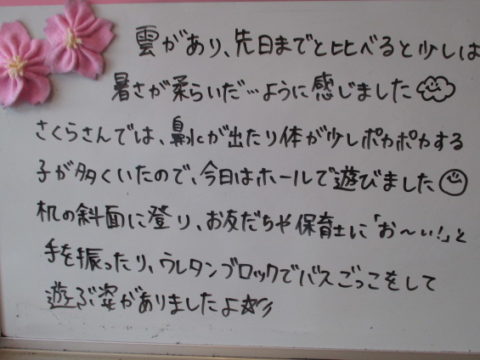 雲があり、先日までと比べると少しは
暑さが柔らいだ…ように感じました
さくらさんでは、鼻水が出たり体が少しポカポカする
子が多くいたので、今日はホールで遊びました
机の斜面に登り、お友だちや保育士に「お〜い!」と
手を振ったり、ウレタンブロックでバスごっこをして
遊ぶ姿がありましたよ☆彡